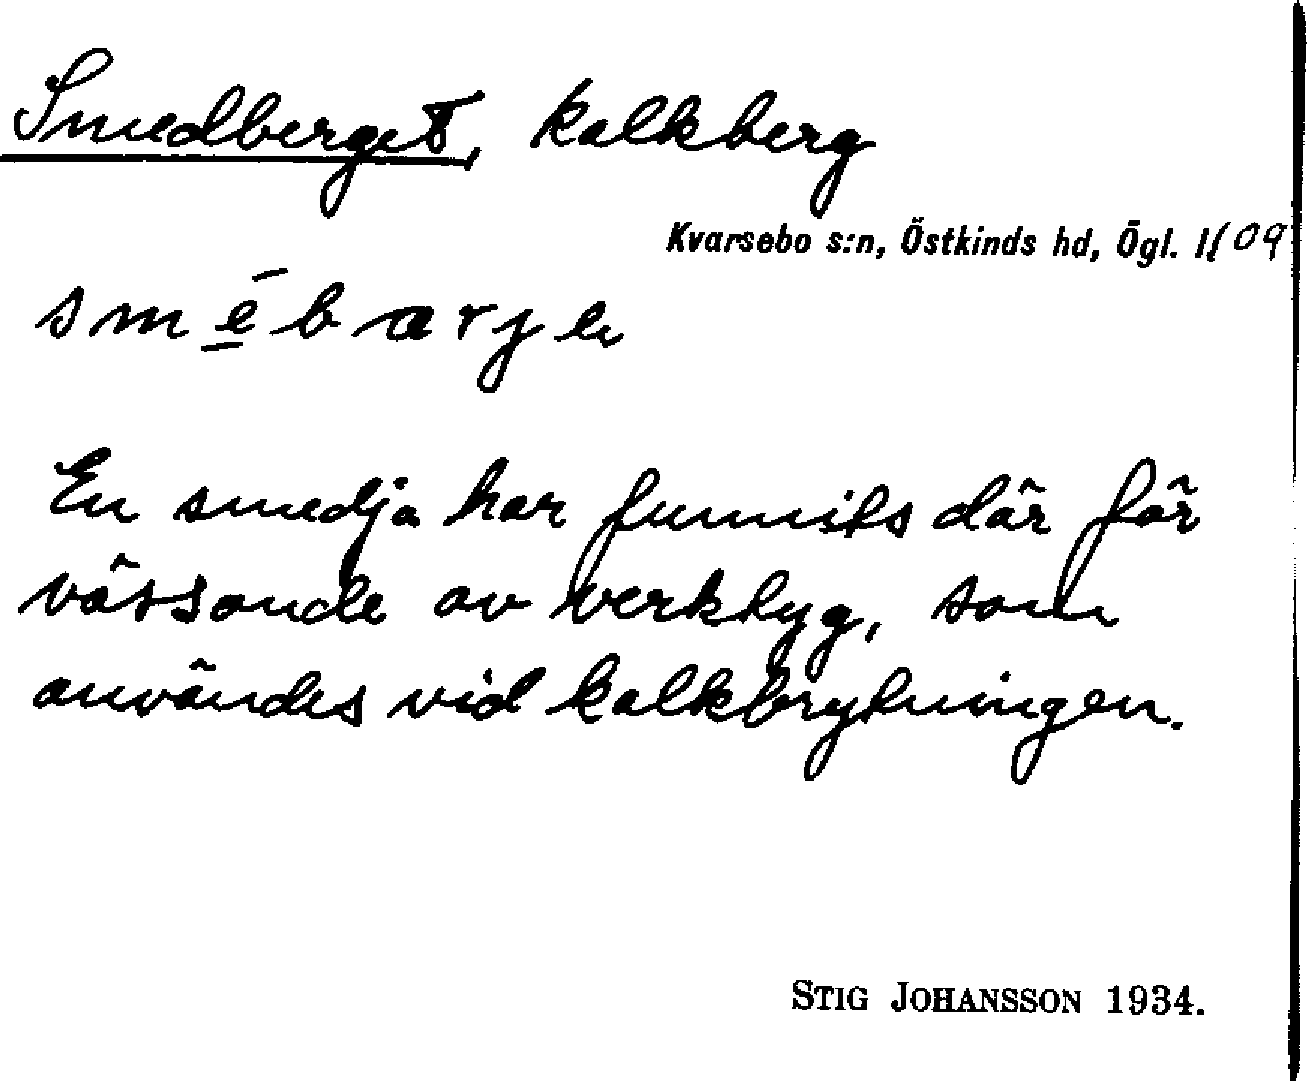 Smedberget, kalkberg
Kvarsebo s:n, Östkinds hd, Ögl. 1/09
smēbarjə
En smedja har funnits där för
vässande av verktyg, som
användes vid kalkbrytningen.
STIG JOHANSSON 1934.